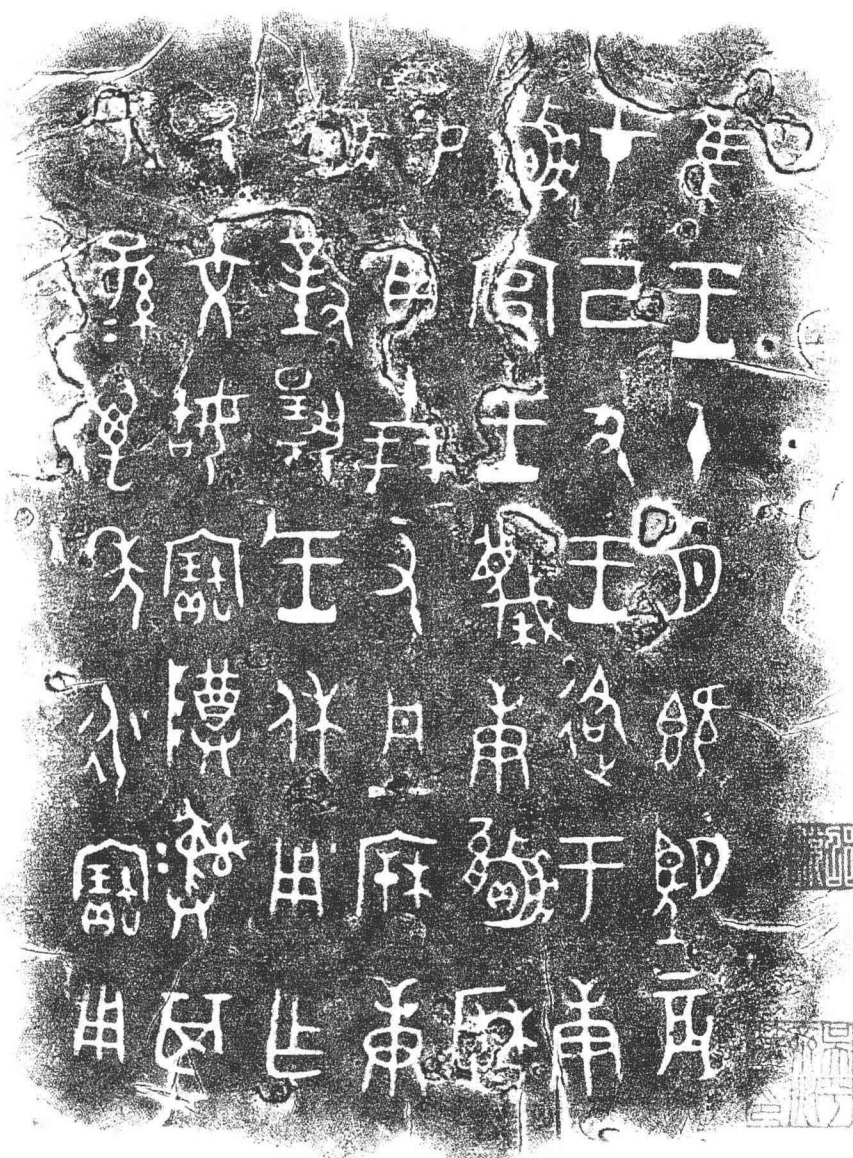 隹王十月既望辰
才己丑王各于庚
嬴宮王蔑庚嬴歷
易貝十朋又丹一㭒庚
嬴對揚王休用乍
厥文姑寶尊彝其
子子孫孫萬年永寶用